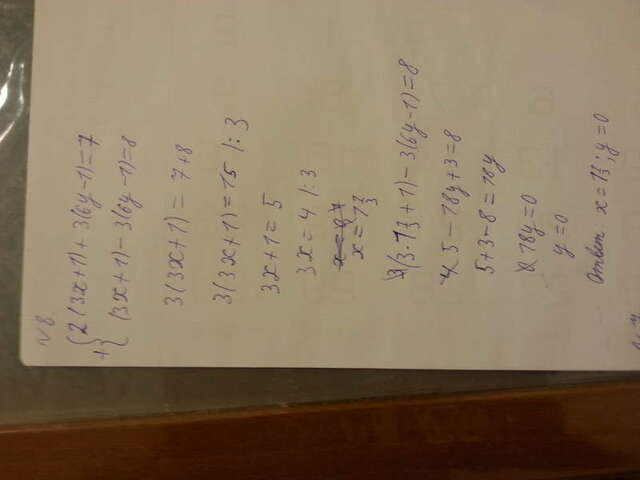 N8.
{2(3x+1)+3(6y-1)=7
+{(3x+1)-3(6y-1)=8
3(3x+1)=7+8
3(3x+1)=15 /:3
3x+1=5
3x=4 /:3
x=1⅓
(3·1⅓+1)-3(6y-1)=8
5-18y+3=8
5+3-8=18y
18y=0
y=0
Ответ. x=1⅓; y=0